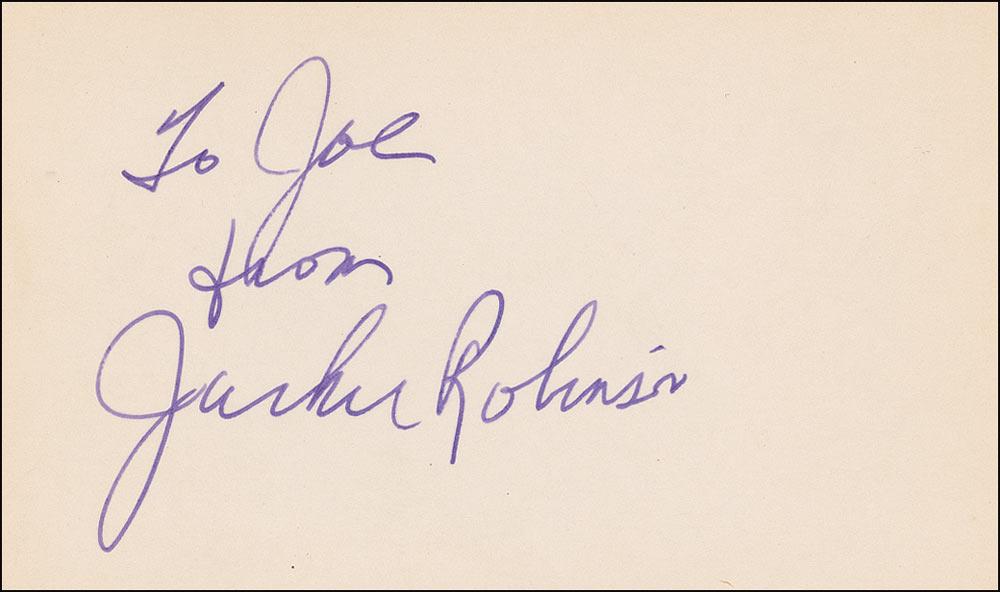 To Joe
from
Jackie Robinson